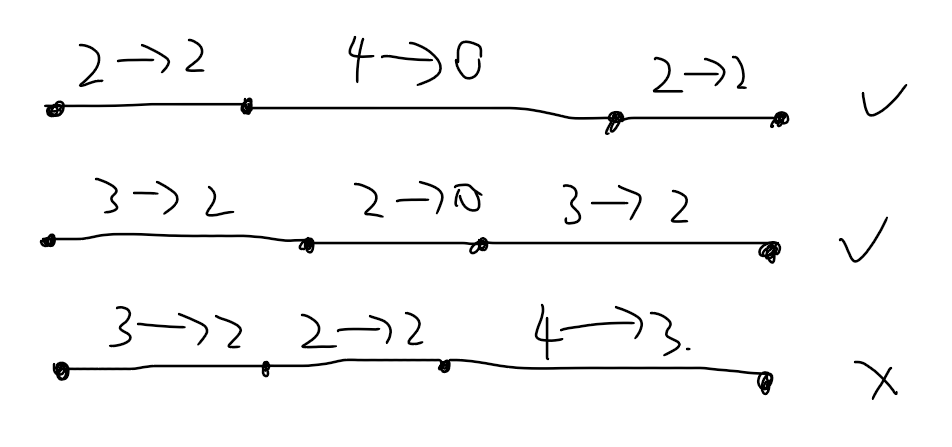 2→2 4→0 2→2 ✓
3→2 2→0 3→2 ✓
3→2 2→2 4→3. ×